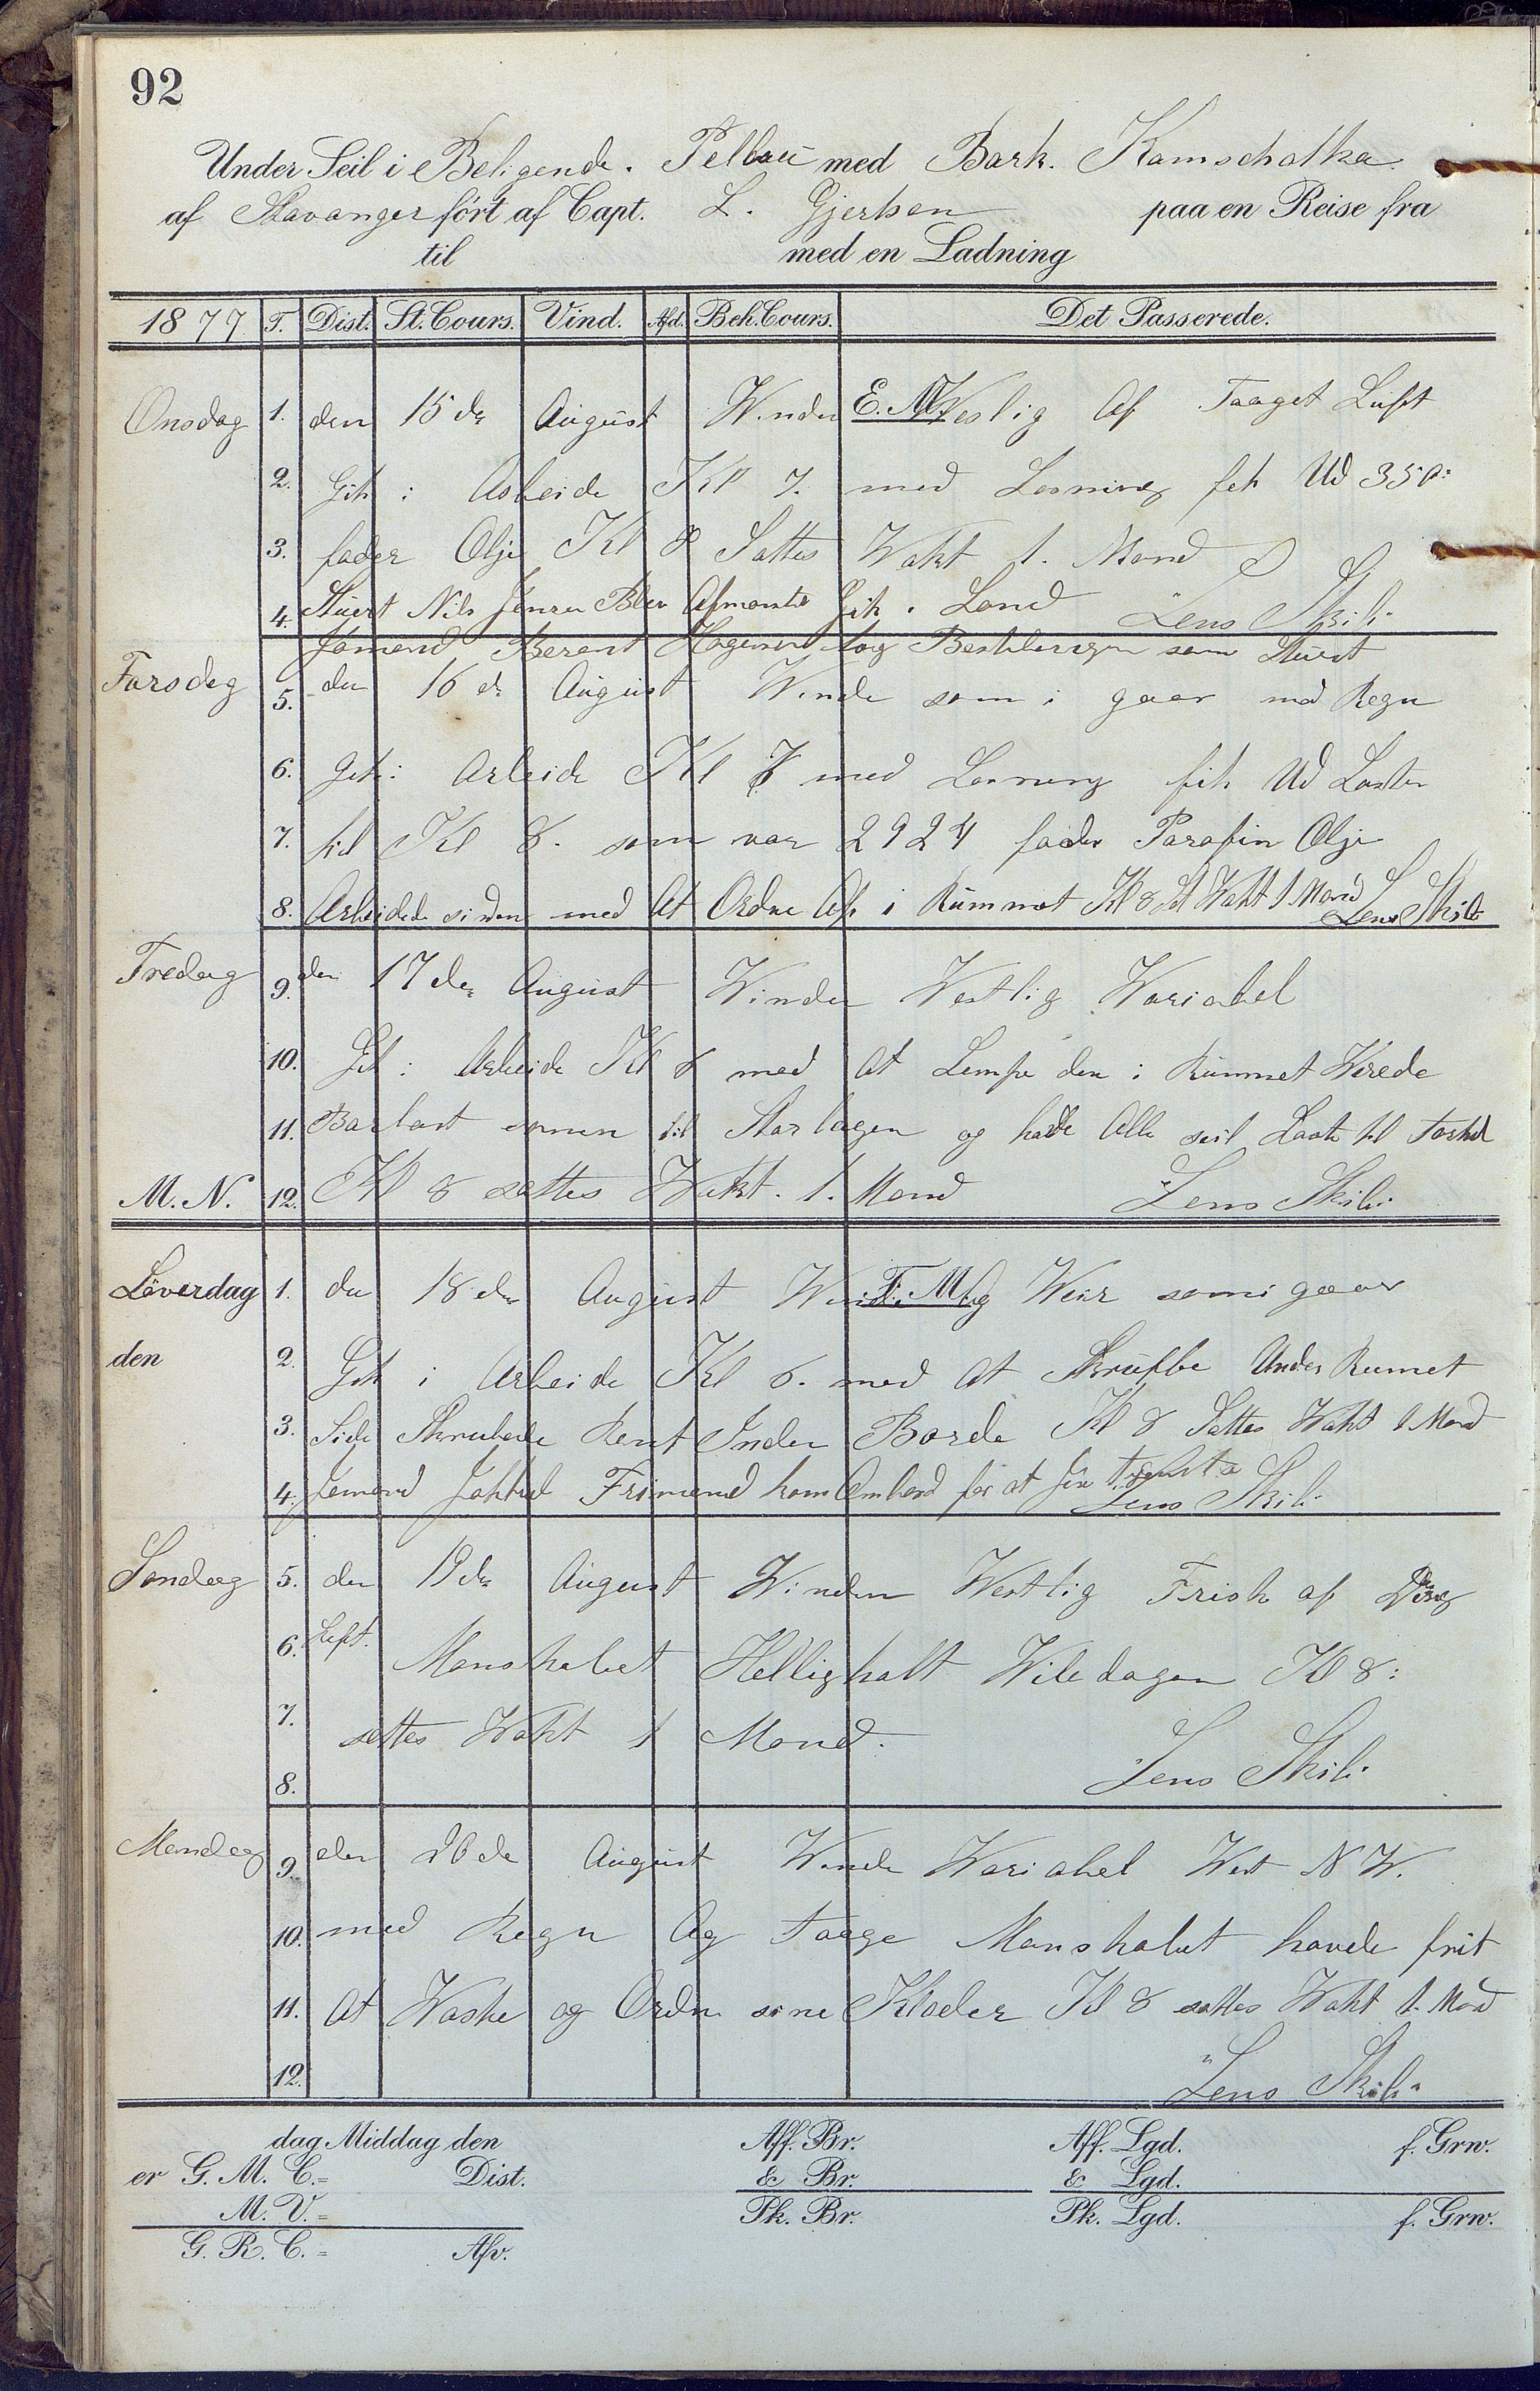 92
Under Seil i Beligende. Pellau med Bark. Kamschatka
af Stavanger ført af Capt. L. Gjertsen paa en Reise fra
til med en Ladning
1877 T. Dist. St. Cours. Vind. Afd. Beh. Cours. Det Passerede.
Onsdag 1. den 15 de August Winden E. M. Westlig Af Taaget Luft
2. Gik i Arbeide Kl 7. med Losning fek Ud 350:
3. fader Olje Kl 8 Sattes Wakt 1. Mand
4. Stuert Nils Jensen Blev Afmønstr Gik i Land Jens Skili
Jomend Berent Hagensen tog Bestilengen som Stuert
Torsdag 5. den 16 de August Winde som i gaar med Regn
6. Gik i Arbeide Kl 6 med Losning fik Ud Lasten
7. til Kl 8. som var 2924 fader Parafin Olje
8. Arbeidede siden med At Ordne Op i Rummet Kl 8 St Wakt 1 Mand Jens Skili
Fredag 9. den 17 de August Winden Westlig Wariabel
10. Gik i Arbeide Kl 6 med At Lempe den i Rummet Werede
11. Barlast til Storlugen og hadde Alle seil
M. N. 12. Kl 8 sattes Wakt. 1. Mand Jens Skili
Löverdag 1. den 18 de August Wind F. M. Og Weir som i gaar
den 2. Gik i Arbeide Kl 6. med At Skrubbe Under Rumet
3. Side Skrubede Rent Inden Borde Kl 8 Sattes Wakt 1 Mand
4. Jomend Frimand kom Ombord for at Jens Skili
Søndag 5. den 19 de August Winden Westlig Frisk af
6. Luft. Manskabet Helligholt Wiledagen Kl 8:
7. settes Wakt 1 Mand.
8. Jens Skili
Mandag 9. den 20 de August Winde Wariabel West N W.
10. med Regn Og Taage Manskabet havde frit
11. At Waske og Ordne sine Klæder Kl 8 sattes Wakt 1. Mand
12. Jens Skili
dag Middag den Aff. Br. Aff. Lgd. f. Grw.
er G. M. C. = Dist. & Br. & Lgd.
M. V. = Pk. Br. Pk. Lgd. f. Grw.
G. R. C. = Afv.